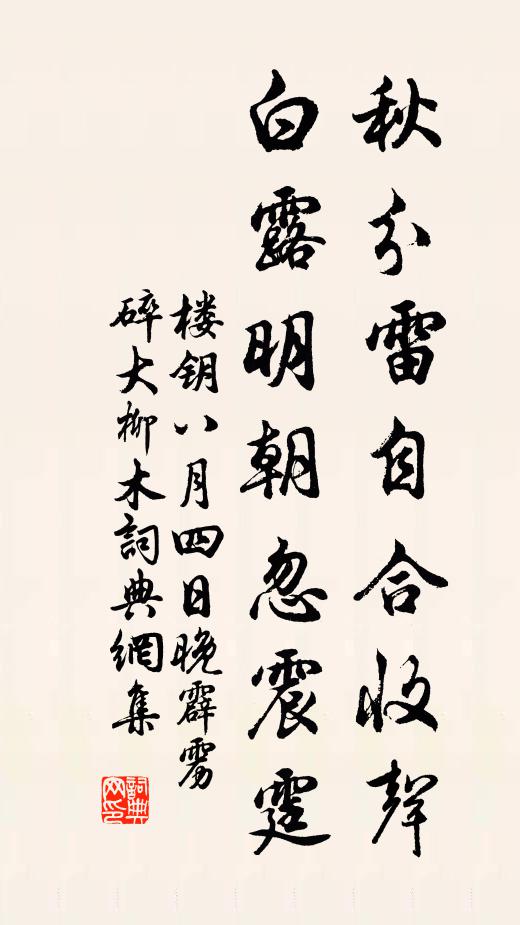 秋分雷自合收聲
白露明朝忽震霆
楼鈅八月四日晚霹雳
碎大柳木詞典網集
詞典网印